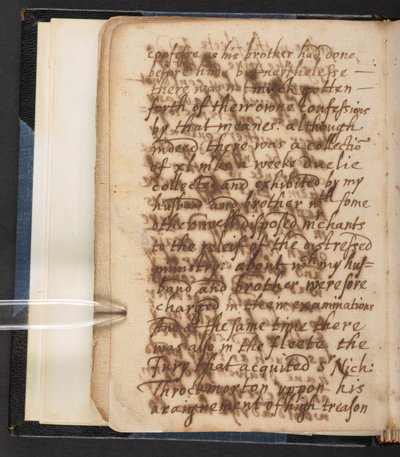 confesse as his brother had done
before him, but nertheless
there was not much gotten
forth of their owne confessions
by that meanes. although
indeed there was a collectiō
of xl mks a weeke duelie
collected and exhibited by my
husband and brother wth some
other well disposed mchants
to the releif of the distressed
ministry: about wch my hus=
band and brother weresore
charged in their examinations
And at the same tyme there
was also in the fleete the
Jury that acquited Sr Nich:
Throckmorton uppon his
araignement of high treason